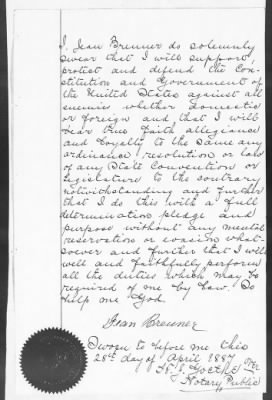 I, Jean Brenner do solemnly
swear that I will support,
protect and defend the Con-
stitution and Government of
the United States against all
enemies whether domestic
or foreign and that I will
bear true faith, allegiance
and loyalty to the same any
ordinance resolution or law
of any State Convention or
Legislature to the contrary
notwithstanding and further
that I do this with a full
determination pledge and
purpose without any mental
reservation or evasion what-
soever and further that I will
well and faithfully perform
all the duties which may be
required of me by law. So
help me God.
Jean Brenner
Sworn to before me this
28th day of April 1887
Notary Public